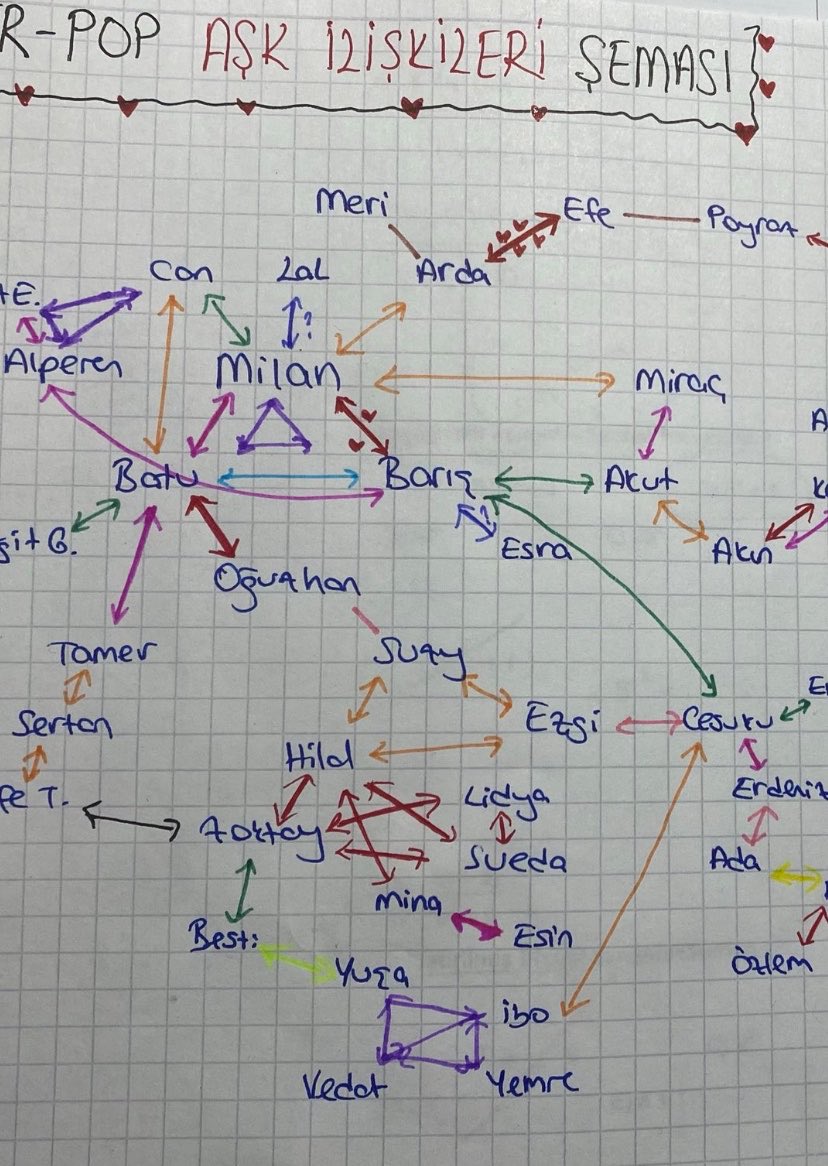 R-POP AŞK İLİŞKİLERİ ŞEMASI
Meri
Efe
Poyraz
Arda
Can
Lal
E.
Alperen
?
Milan
Miraç
Batu
Barış
Akut
?
Esra
Akın
şit G.
Oğuzhan
Tamer
Suzy
Sertan
Ezgi
Cesuru
Hilal
Erdeniz
fe T.
Lidya
Zoktay
Sueda
Ada
Mina
Esin
Besti
Özlem
Yuşa
ibo
Vedat
Yemre